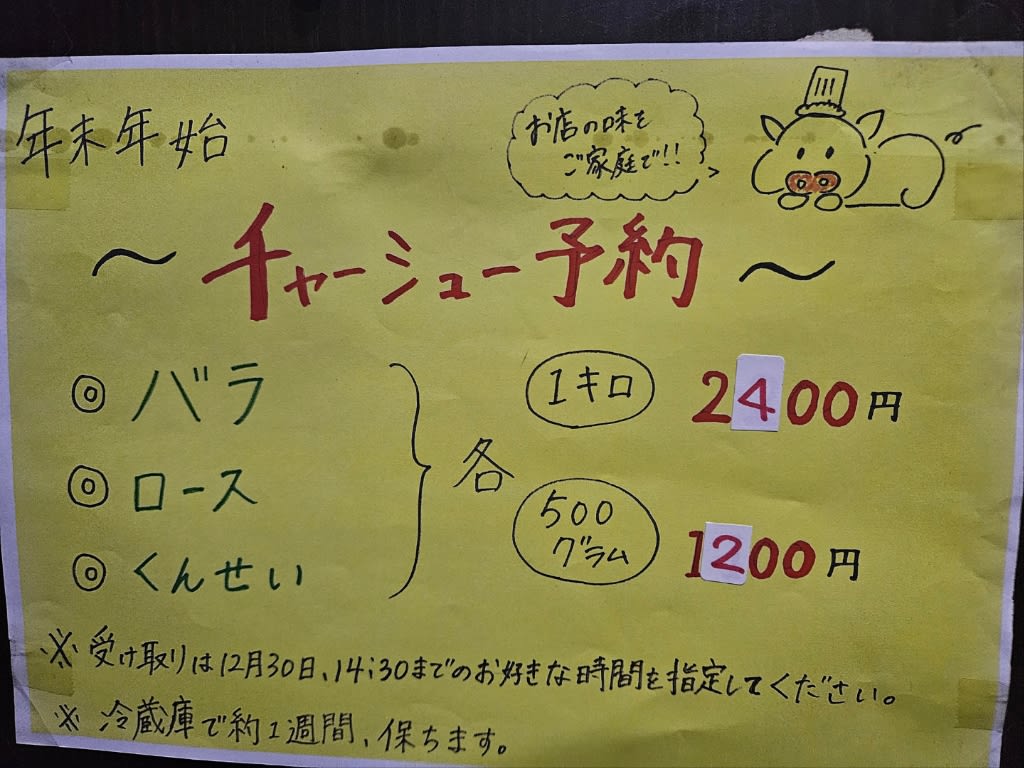 年末年始
お店の味を
ご家庭で!!
～ チャーシュー予約 ～
◎ バラ
◎ ロース
◎ くんせい
各
1キロ 2400円
500グラム 1200円
※ 受け取りは12月30日、14:30までのお好きな時間を指定してください。
※ 冷蔵庫で約1週間、保ちます。